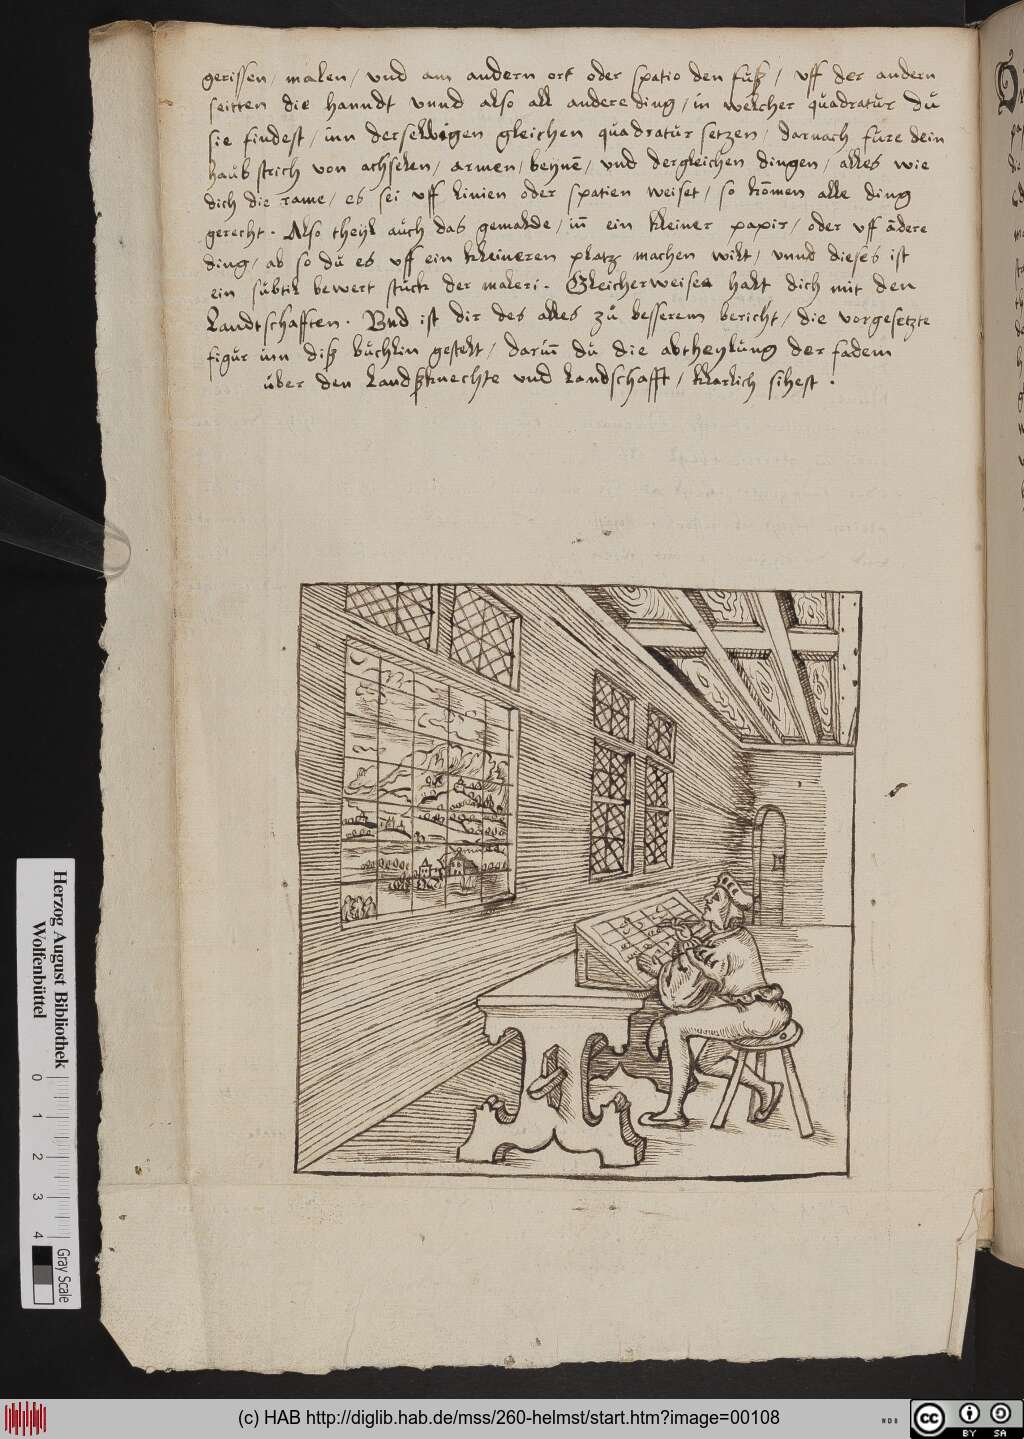 gerissen / malen / vnd am andern ort oder spatio den fuͦß / vff der andern
seitten die hanndt vnnd also all andere ding / in welcher quadratur du
sie findest / inn derselbigen gleichen quadratur setzen / darnach füre dein
haubstrich von achselen / armen / beynē / vnd dergleichen dingen / alles wie
dich die rame / es sei vff linien oder spatien weiset / so kōmen alle ding
gerecht . Also theyl auch das gemalde / in̄ ein kleiner papir / oder vff ādere
ding / ab so du es vff ein kleineren platz machen wilt / vnnd dieses ist
ein subtil bewert stuck der maleri . Gleicherweise halt dich mit den
Landtschafften . Vnd ist dir des alles zu besserem bericht / die vorgesetzte
figur inn diß buchlin gestelt / darin̄ du die abtheylung der fadem
über den Landßknechte vnd Landschafft / klarlich sihest .
Herzog August Bibliothek
Wolfenbüttel
0 1 2 3 4
Gray Scale
(c) HAB http://diglib.hab.de/mss/260-helmst/start.htm?image=00108
cc BY SA